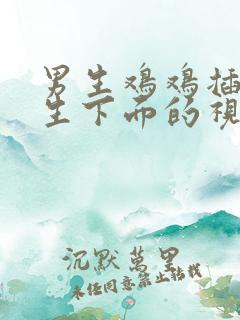 男生鸡鸡插
生下面的视
沉默萬里
未经同意禁止转载